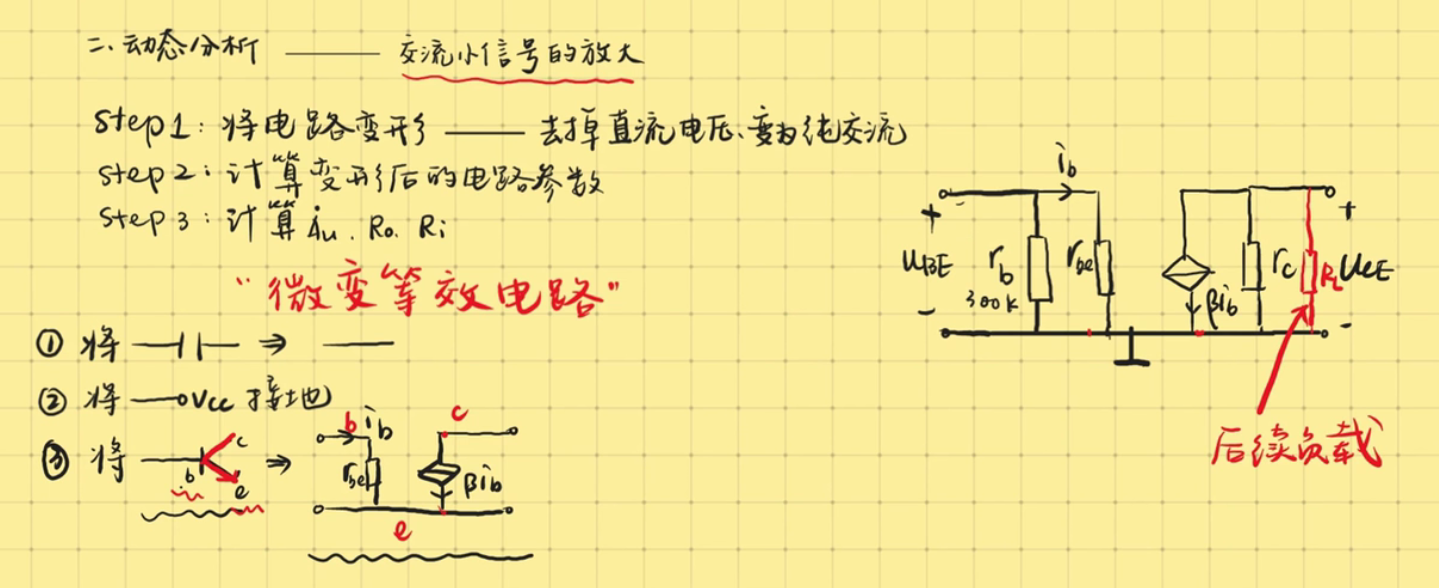 二、动态分析 —— 交流小信号的放大
step1：将电路变形 —— 去掉直流电压、变为纯交流
step2：计算变形后的电路参数
step3：计算Ȧu、Ro、Ri
"微变等效电路"
① 将 ⇒
② 将 Vcc 接地
③ 将 b c e ⇒ b ib c rbe βib e
ib
+ UBE -
rb 300K
rbe
βib
rc
RL
+ UCE -
后续负载